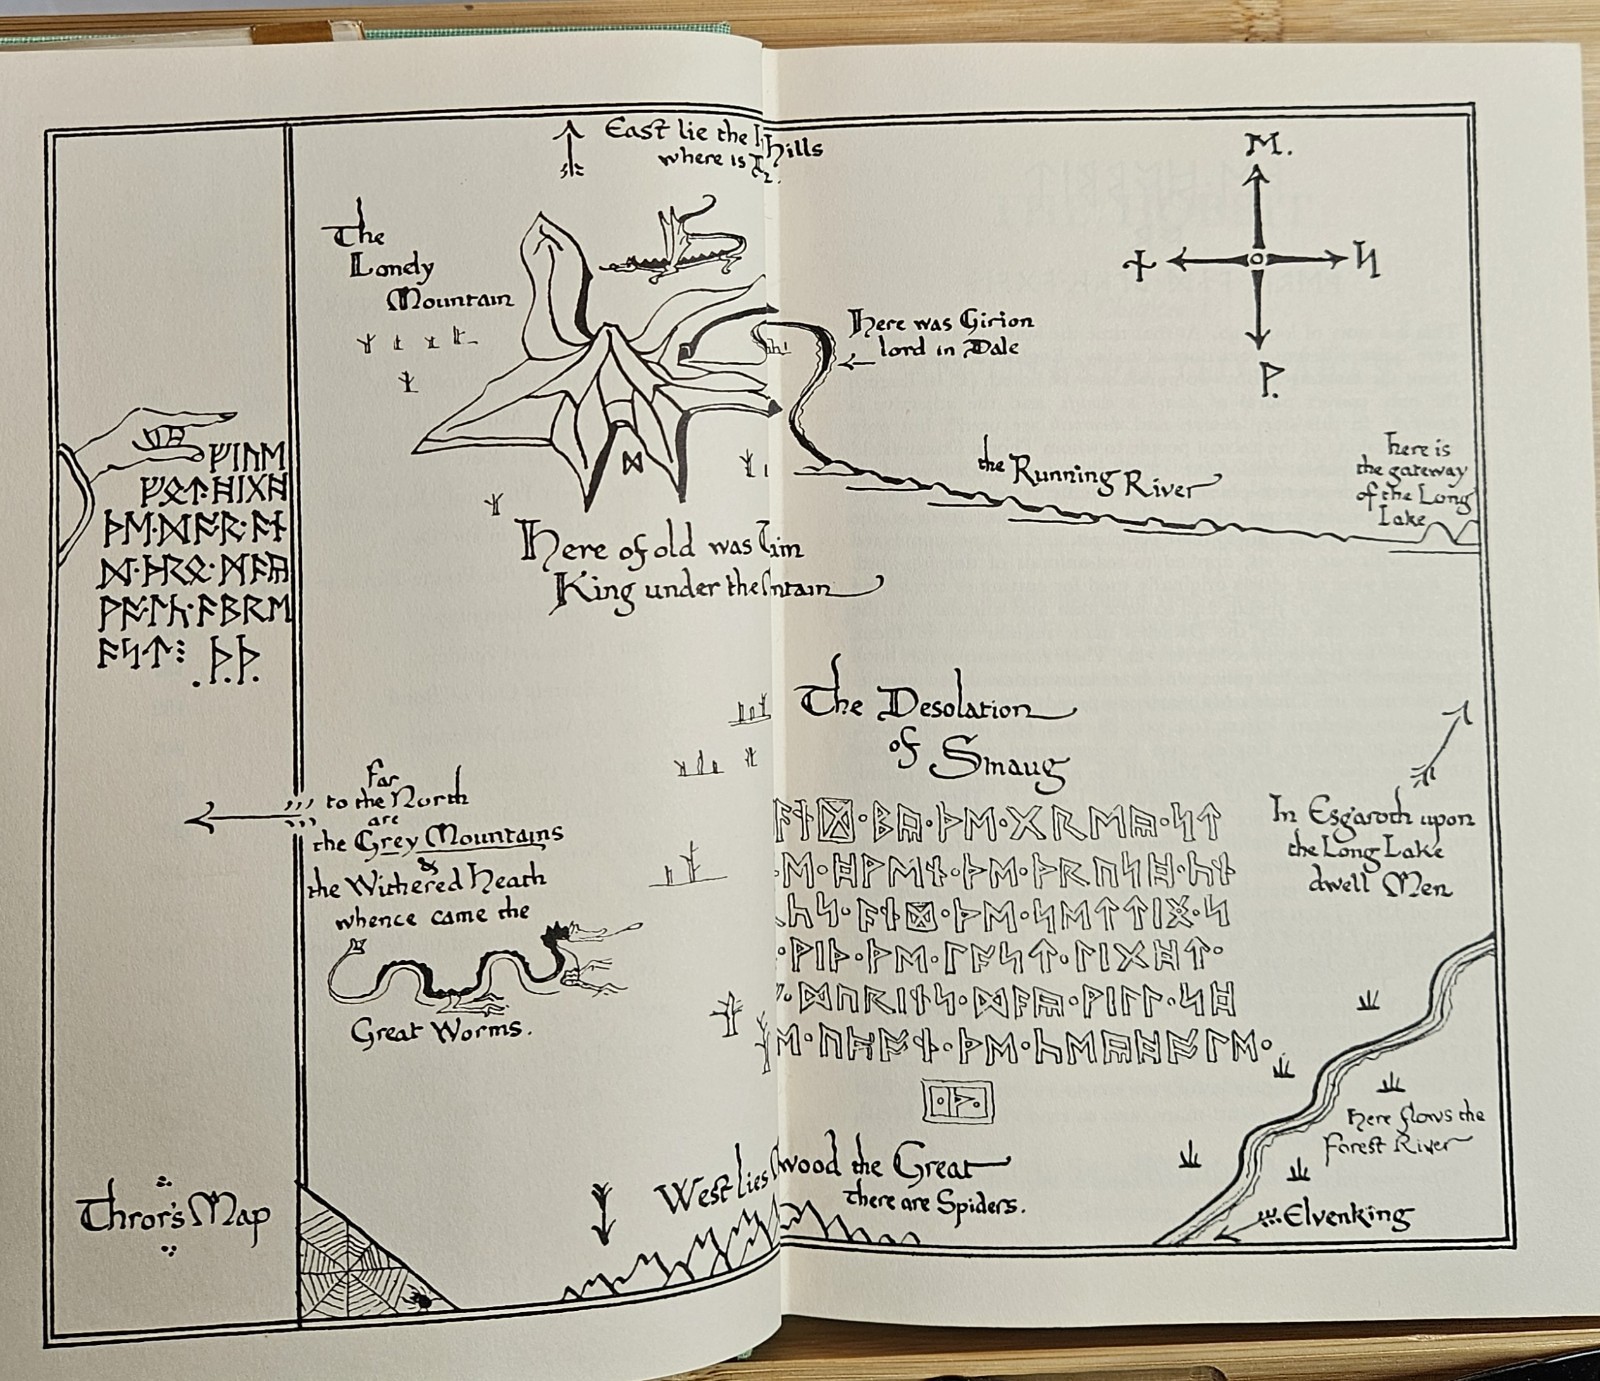 East lie the hills
where is
The
Lonely
Mountain
ᛖ.
ᚾ
ᛋ
ᚹ.
Here was Girion
lord in Dale
ᛞ
the Running River
Here is
the gateway
of the Long
Lake
Here of old was
King under the
ᚠᛁᚢᛖ
ᚠᚩᛏ·ᚻᛁᚷᚻ
ᚦᛖ·ᛞᚩᚱ·ᚪᚾ
ᛞ·ᚦᚱᛟ·ᛗᚪᚣ
ᚹᚪᛚᚳ·ᚪᛒᚱᛖ
ᚪᛋᛏ⁝ .ᚦ.ᚦ.
The Desolation
of Smaug
Far
to the North
are
the Grey Mountains
&
the Withered Heath
whence came the
Great Worms.
ᚪᚾᛞ·ᛒᚣ·ᚦᛖ·ᚷᚱᛖᚣ·ᛋᛏ
ᛖ·ᚻᚹᛖᚾ·ᚦᛖ·ᚦᚱᚢᛋᚻ·ᚳᚾ
ᚳᛋ·ᚪᚾᛞ·ᚦᛖ·ᛋᛖᛏᛏᛁᛝ·ᛋ
·ᚹᛁᚦ·ᚦᛖ·ᛚᚪᛋᛏ·ᛚᛁᚷᚻᛏ·
·ᛞᚢᚱᛁᚾᛋ·ᛞᚪᚣ·ᚹᛁᛚᛚ·ᛋᚻ
ᛖ·ᚢᛈᚩᚾ·ᚦᛖ·ᚳᛖᚣᚻᚩᛚᛖ·
·ᚦ·
In Esgaroth upon
the Long Lake
dwell Men
Here flows the
Forest River
Elvenking
West lies wood the Great
there are Spiders.
Thror's Map